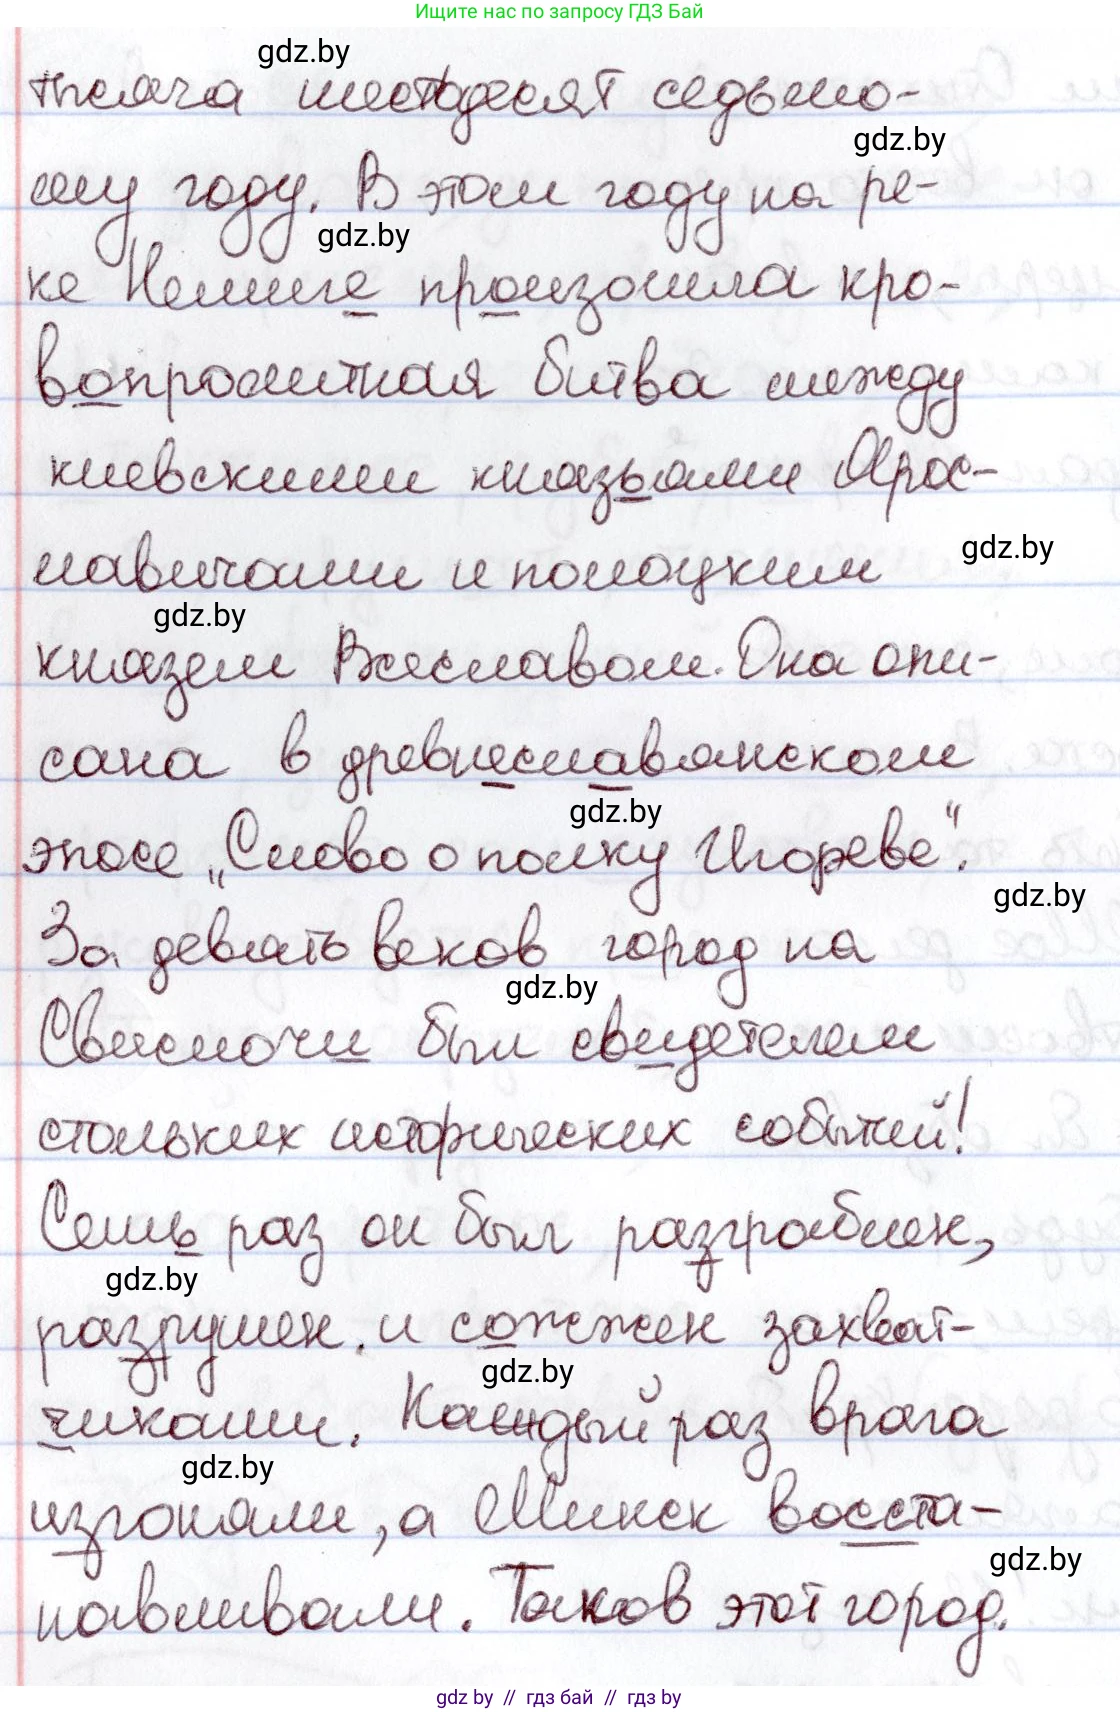 Ищите нас по запросу ГДЗ Бай
gdz.by
тысяча шестьдесят седьмо-
gdz.by
му году. В этом году на ре-
gdz.by
ке Немиге произошла кро-
вопролитная битва между
киевскими князьями Ярос-
gdz.by
лавичами и полоцким
gdz.by
князем Всеславом. Она опи-
сана в древнеславянском
gdz.by
эпосе „Слово о полку Игореве“.
gdz.by
За девять веков город на
gdz.by
Свислочи был свидетелем
стольких исторических событий!
Семь раз он был разграблен,
gdz.by
разрушен и сожжен захват-
gdz.by
чиками. Каждый раз врага
gdz.by
изгоняли, а Минск восста-
gdz.by
навливали. Таков этот город.
gdz by // гдз бай // гдз by